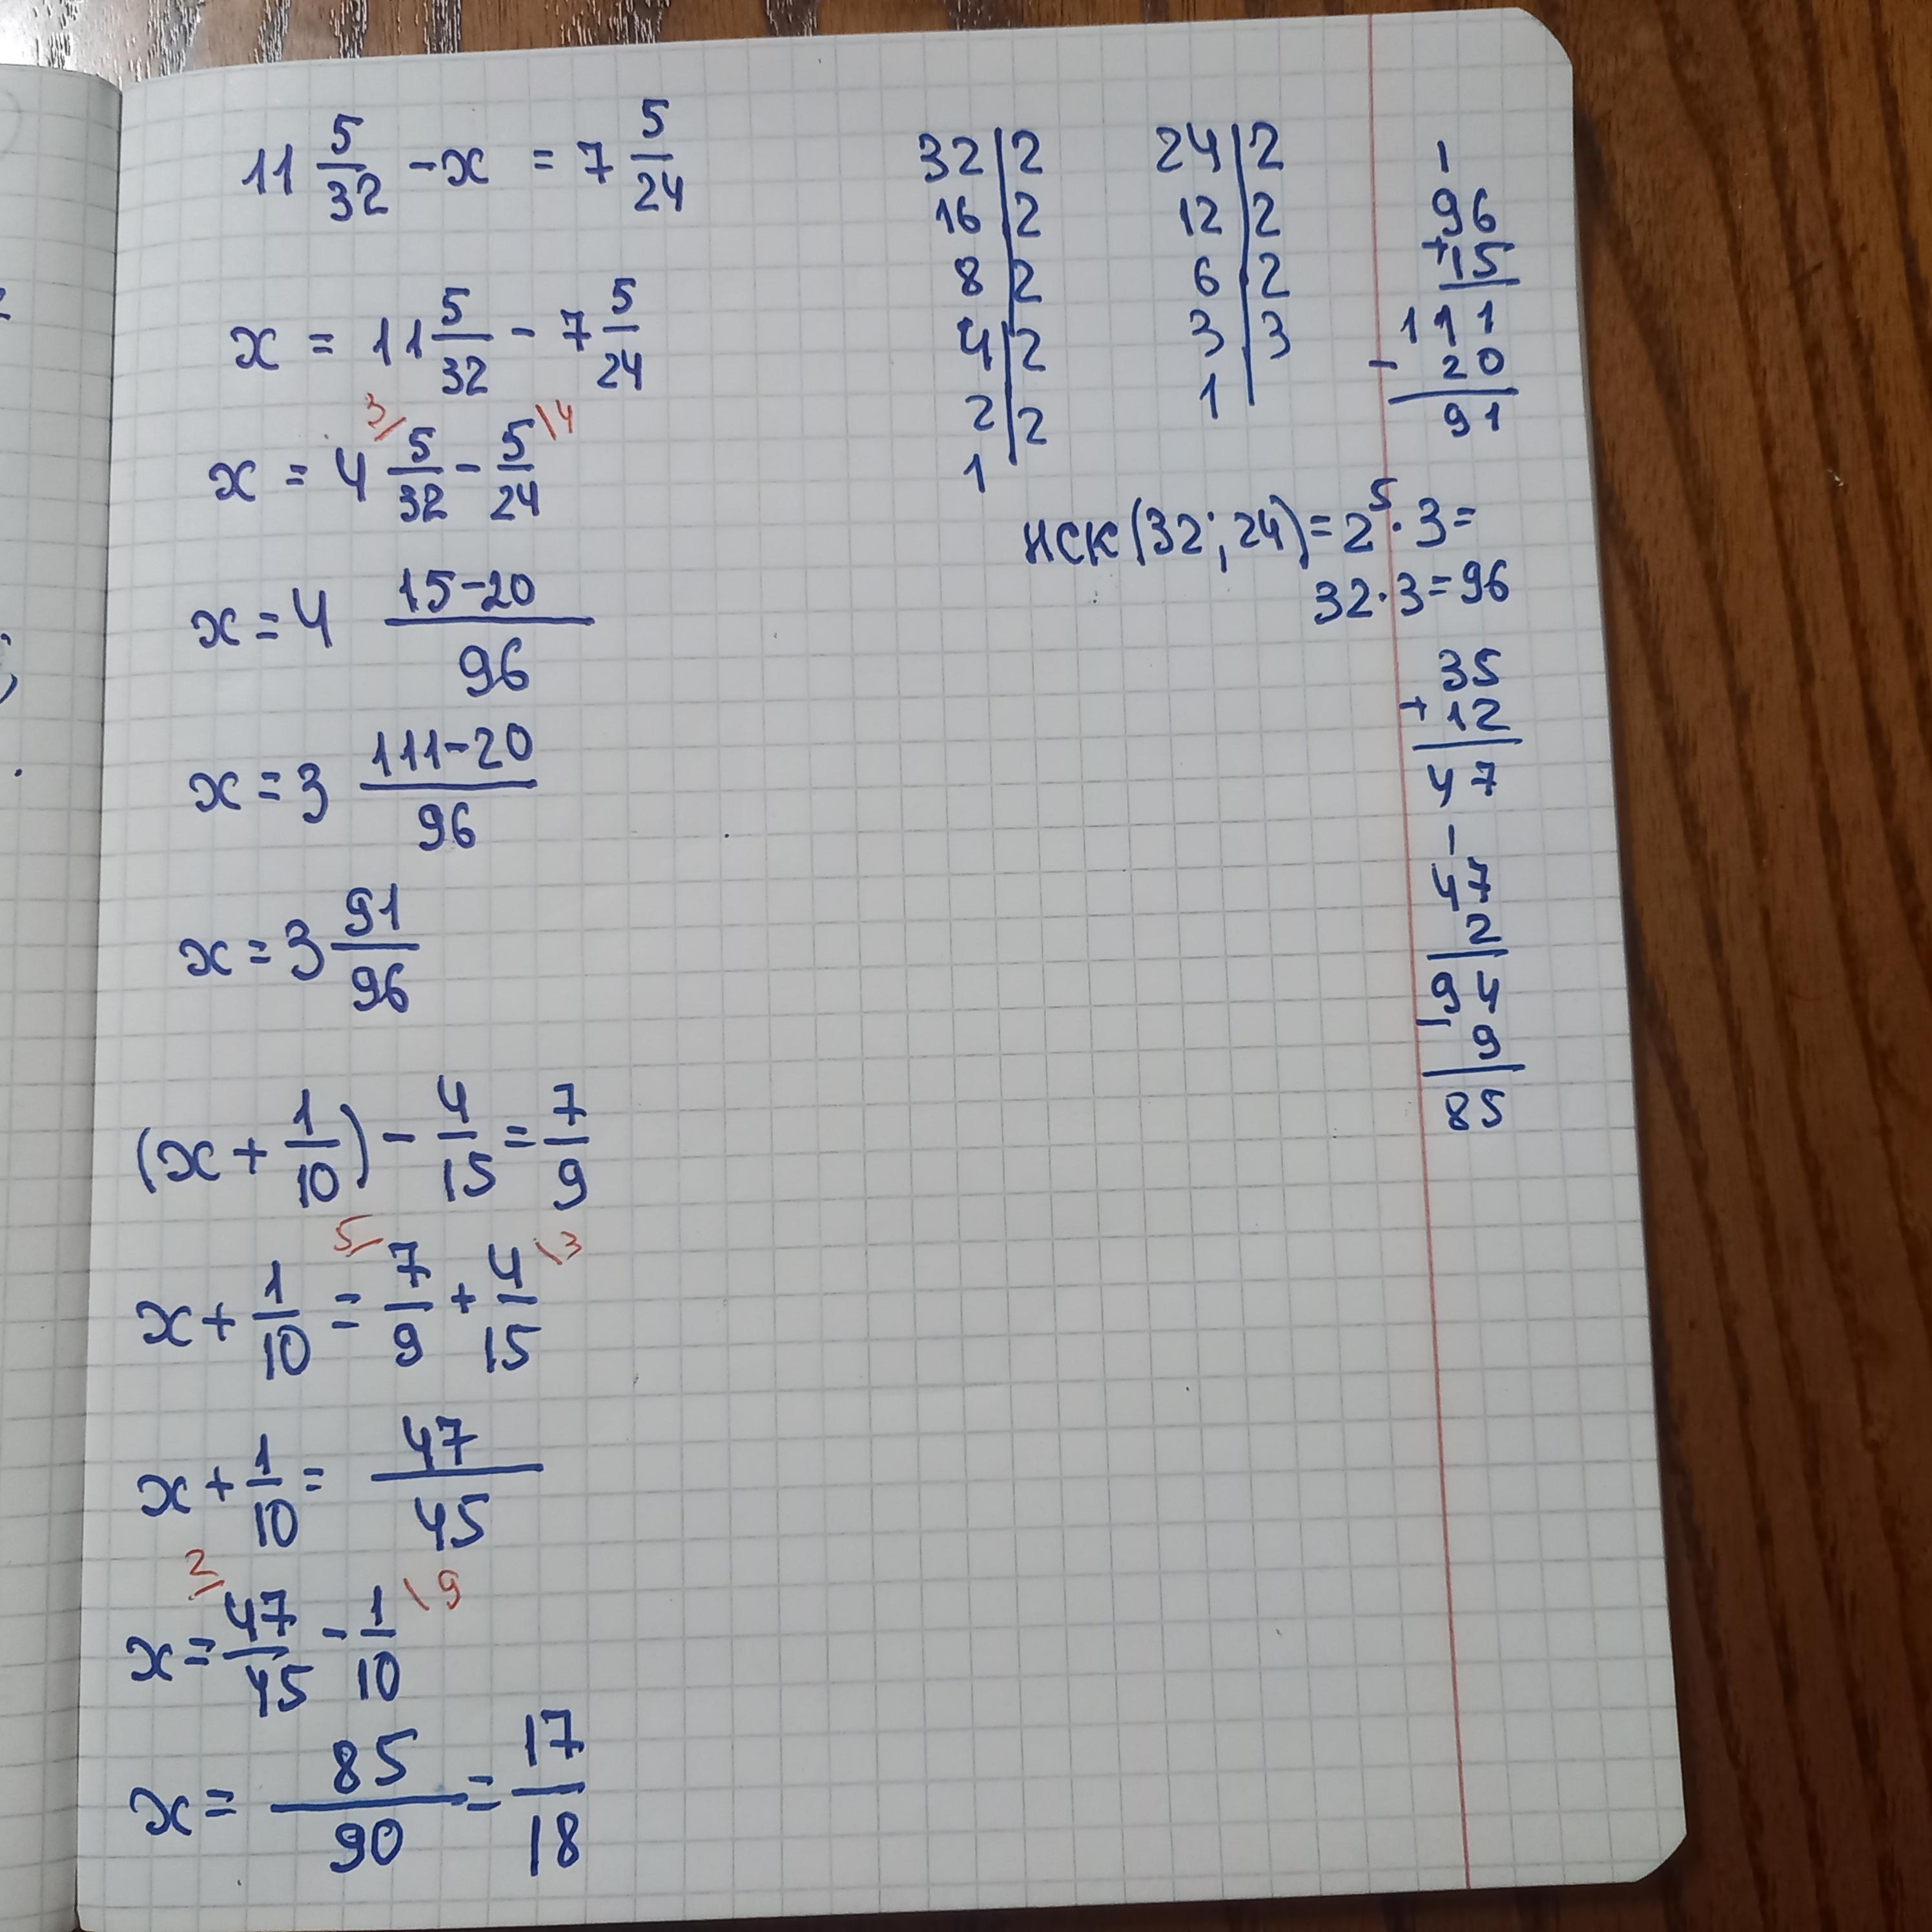 11 5/32 - x = 7 5/24
x = 11 5/32 - 7 5/24
x = 4 3/ 5/32 - 5/24 \4
x = 4 (15-20)/96
x = 3 (111-20)/96
x = 3 91/96
(x + 1/10) - 4/15 = 7/9
x + 1/10 = 5/ 7/9 + 4/15 \3
x + 1/10 = 47/45
x = 2/ 47/45 - 1/10 \9
x = 85/90 = 17/18
32|2
16|2
8|2
4|2
2|2
1
24|2
12|2
6|2
3|3
1
1
96
+15
111
- 20
91
НСК(32; 24) = 2⁵ · 3 =
32 · 3 = 96
35
+ 12
47
1
47
2
94
- 9
85